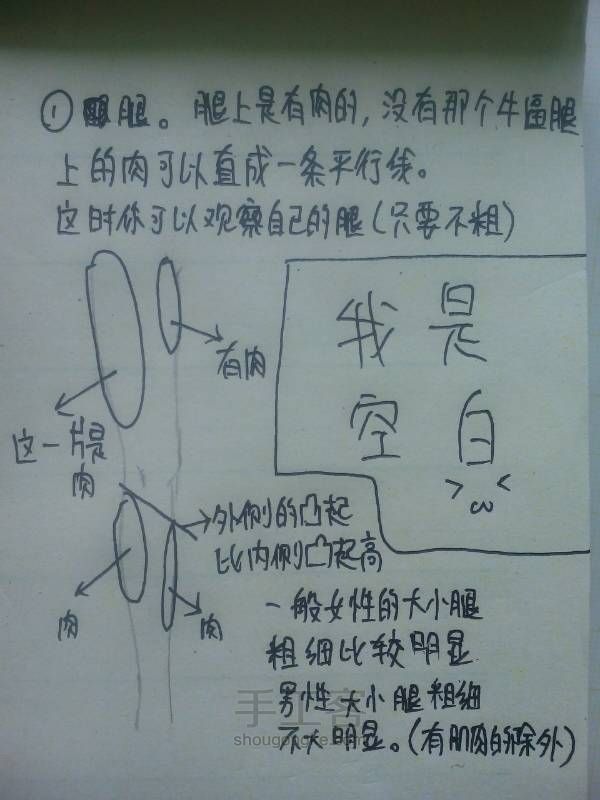 ① 腿。腿上是有肉的,没有那个牛逼腿
上的肉可以直成一条平行线。
这时你可以观察自己的腿(只要不粗)
我是
空白
>ω<
有肉
这一片是
肉
外侧的凸起
比内侧凸起高
肉
肉
一般女性的大小腿
粗细比较明显
男性大小腿粗细
不大明显。(有肌肉的除外)
手工客
shougongke.com